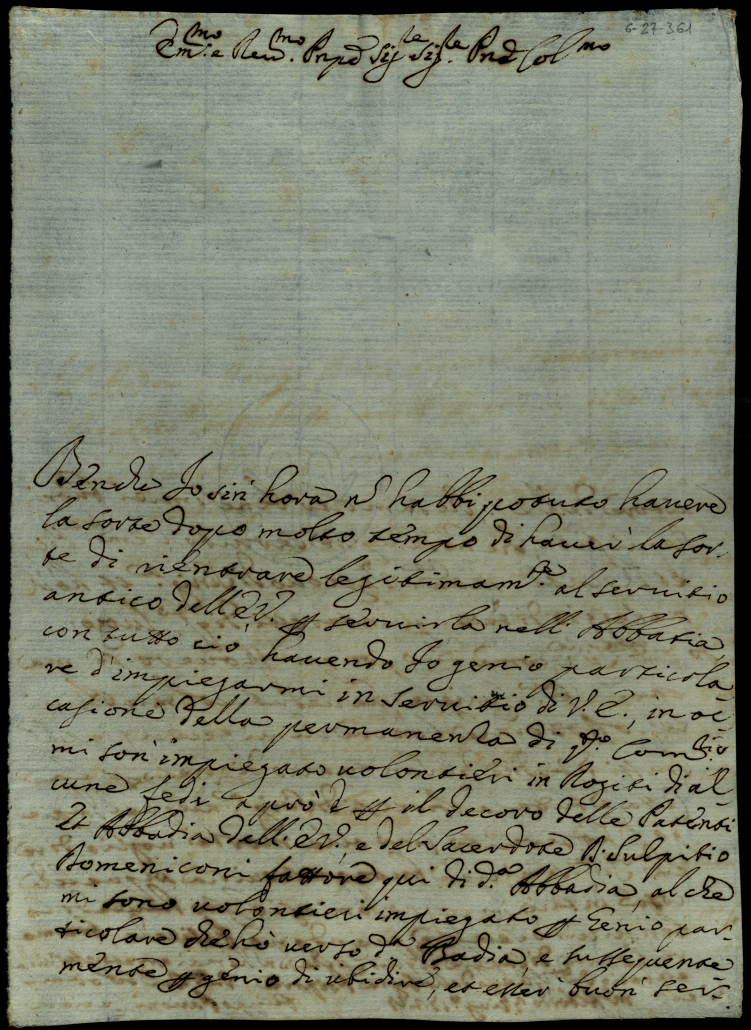 6-27-361
Em.mo e Reu.mo Pnpe Sig.re Sig.re Prõe Col.mo
Benche Io sin' hora nõ habbi potuto hauere
la sorte dopo molto tempo di hauer' la sor-
te di rientrare legitimam.te al seruitio
antico dell'EV. ꝑ seruirla nell'Abbatia,
con tutto ciò hauendo Io genio particola
re d'impiegarmi in seruitio di V.E., in oc
casione della permanenza di q.to Com.rio
mi son' impiegato uolontieri in Rogiti di al
cune fedi a prò ꝑ il decoro delle Patenti
Et Abbadia dell'EV. e del Sacerdote D. Sulpitio
Domeniconi fattore qui di d.a Abbadia, al che
mi sono uolontieri impiegato ꝑ Genio par-
ticolare che hò uerso d.a Badia, e susseguente
mente ꝑ genio di ubidire, et esser' buon' ser-